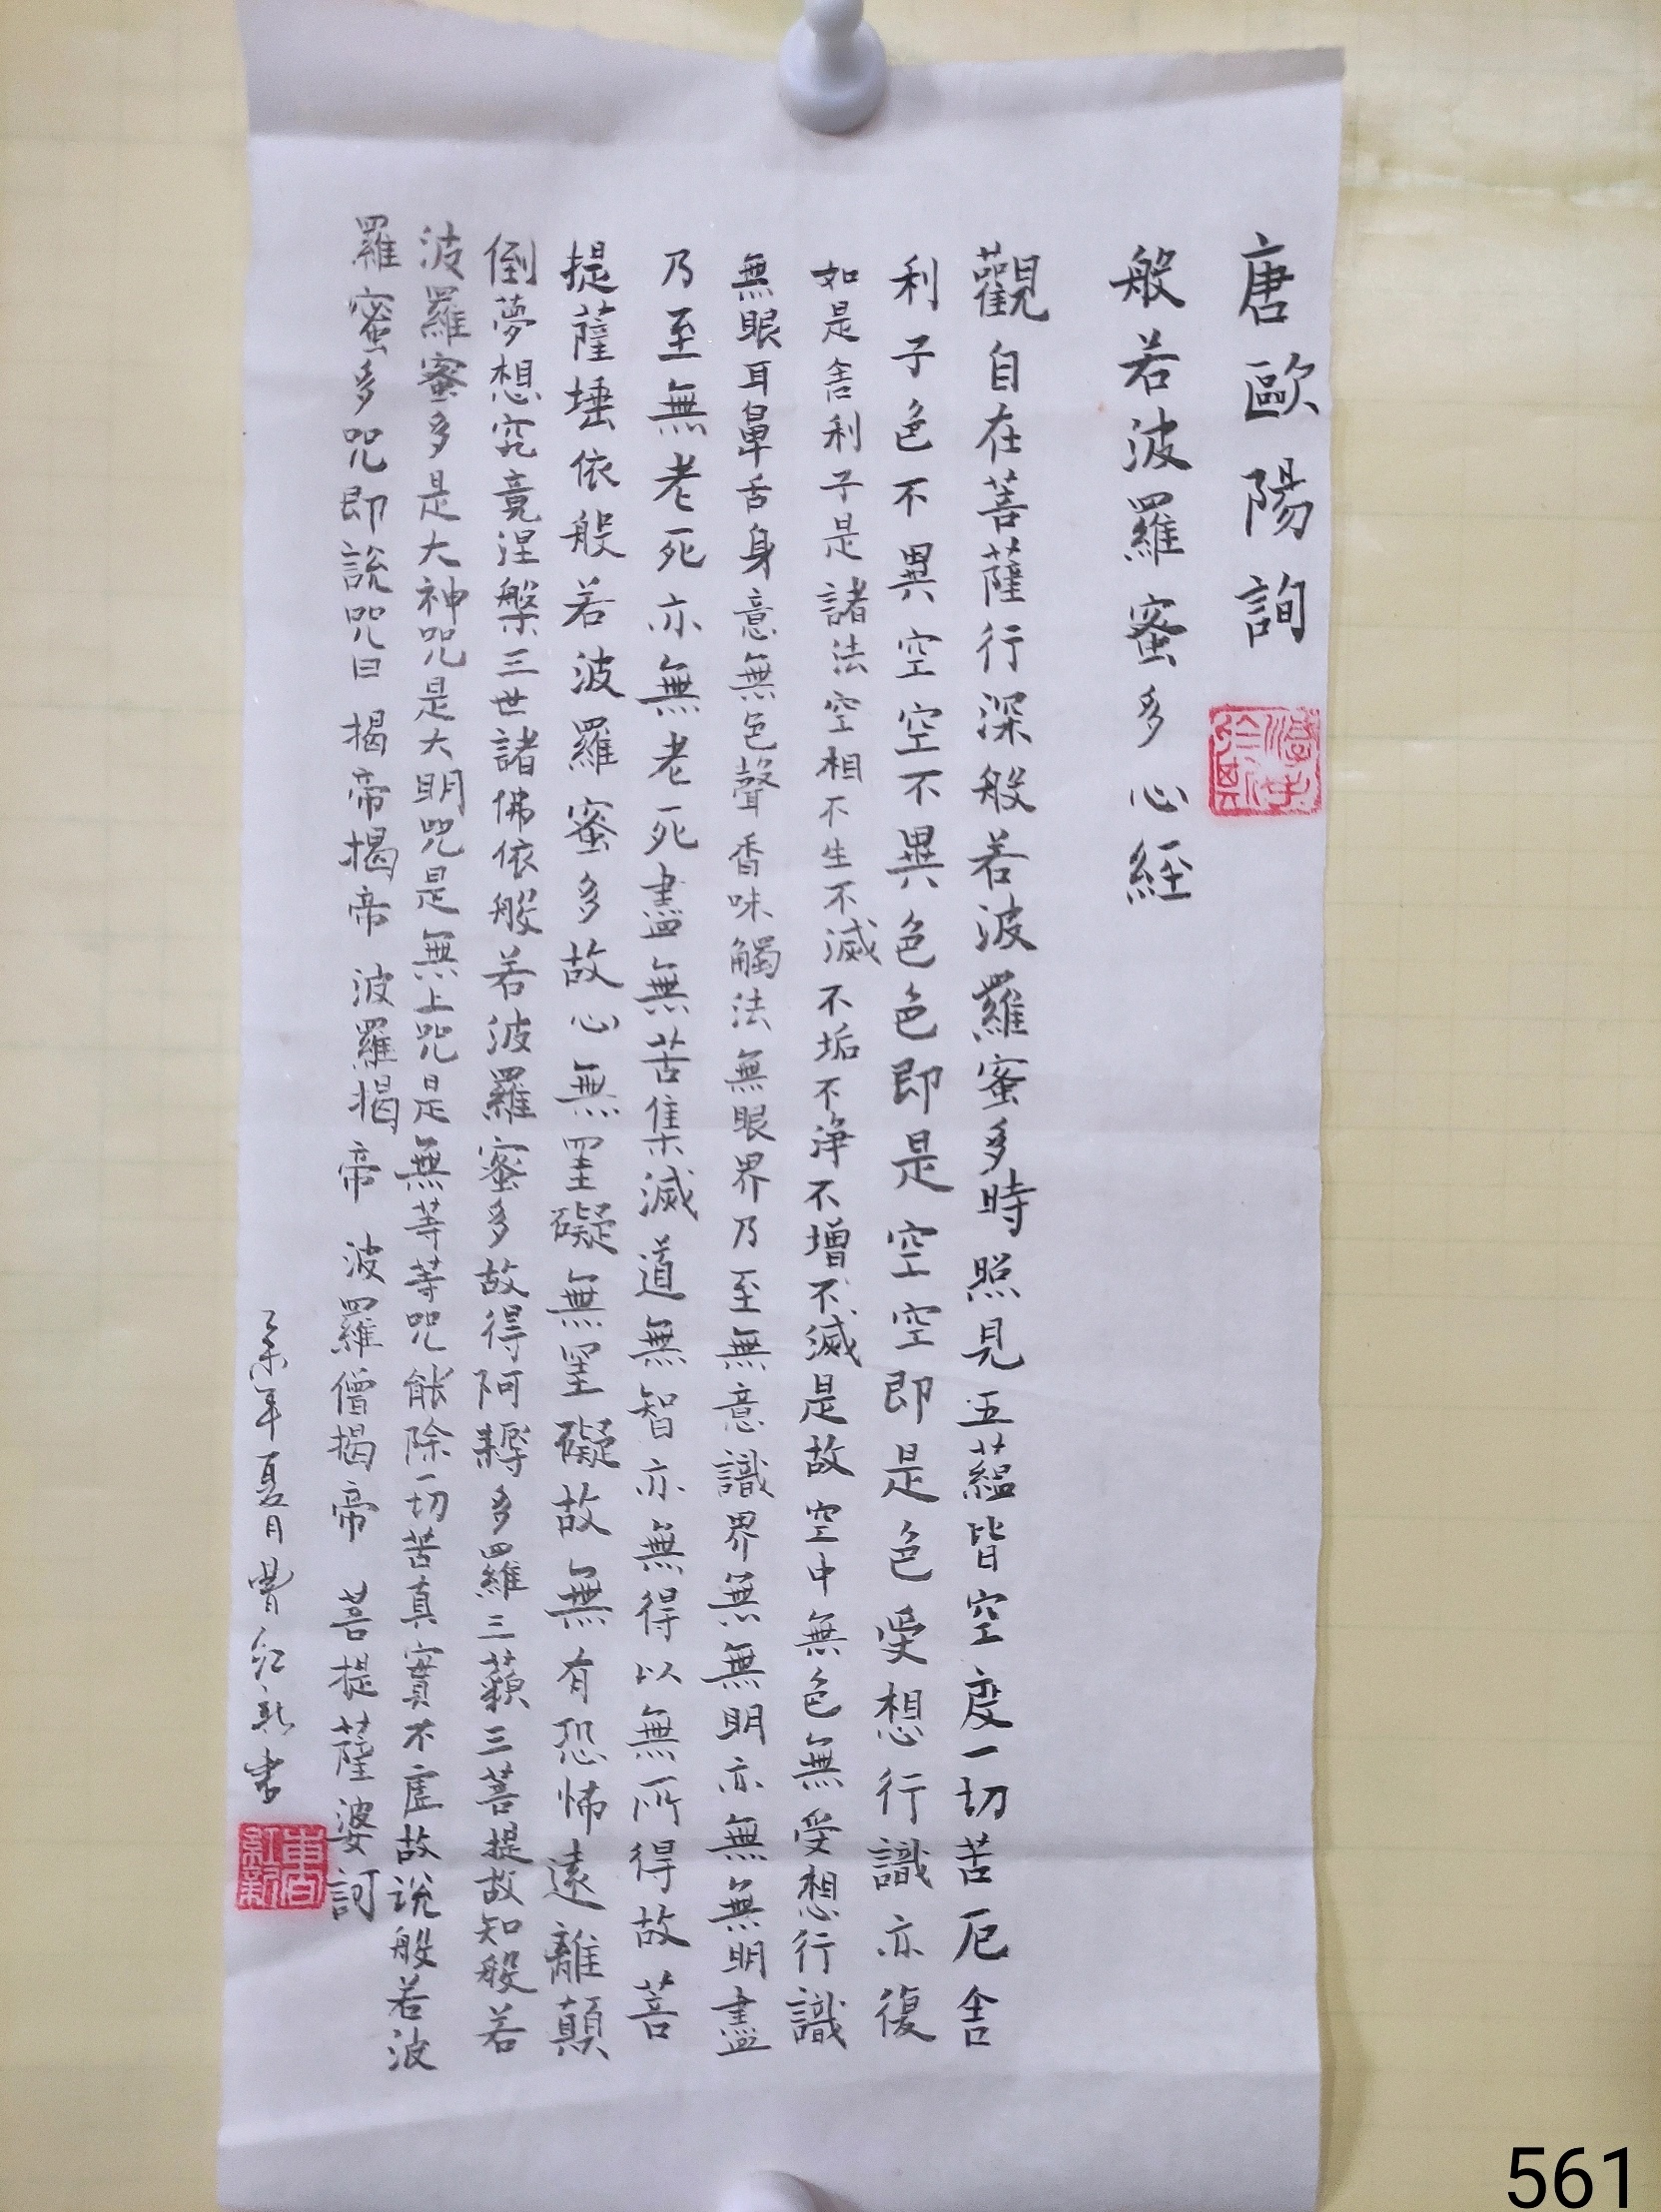 唐歐陽詢
般若波羅蜜多心經
觀自在菩薩行深般若波羅蜜多時照見五蘊皆空度一切苦厄舍
利子色不異空空不異色色即是空空即是色受想行識亦復
如是舍利子是諸法空相不生不滅不垢不淨不增不滅是故空中無色無受想行識
無眼耳鼻舌身意無色聲香味觸法無眼界乃至無意識界無無明亦無無明盡
乃至無老死亦無老死盡無苦集滅道無智亦無得以無所得故菩
提薩埵依般若波羅蜜多故心無罣礙無罣礙故無有恐怖遠離顛
倒夢想究竟涅槃三世諸佛依般若波羅蜜多故得阿耨多羅三藐三菩提故知般若
波羅蜜多是大神咒是大明咒是無上咒是無等等咒能除一切苦真實不虛故說般若波
羅蜜多咒即說咒曰 揭帝揭帝 波羅揭帝 波羅僧揭帝 菩提薩婆訶
年夏月曹紅新書
曹紅新
561